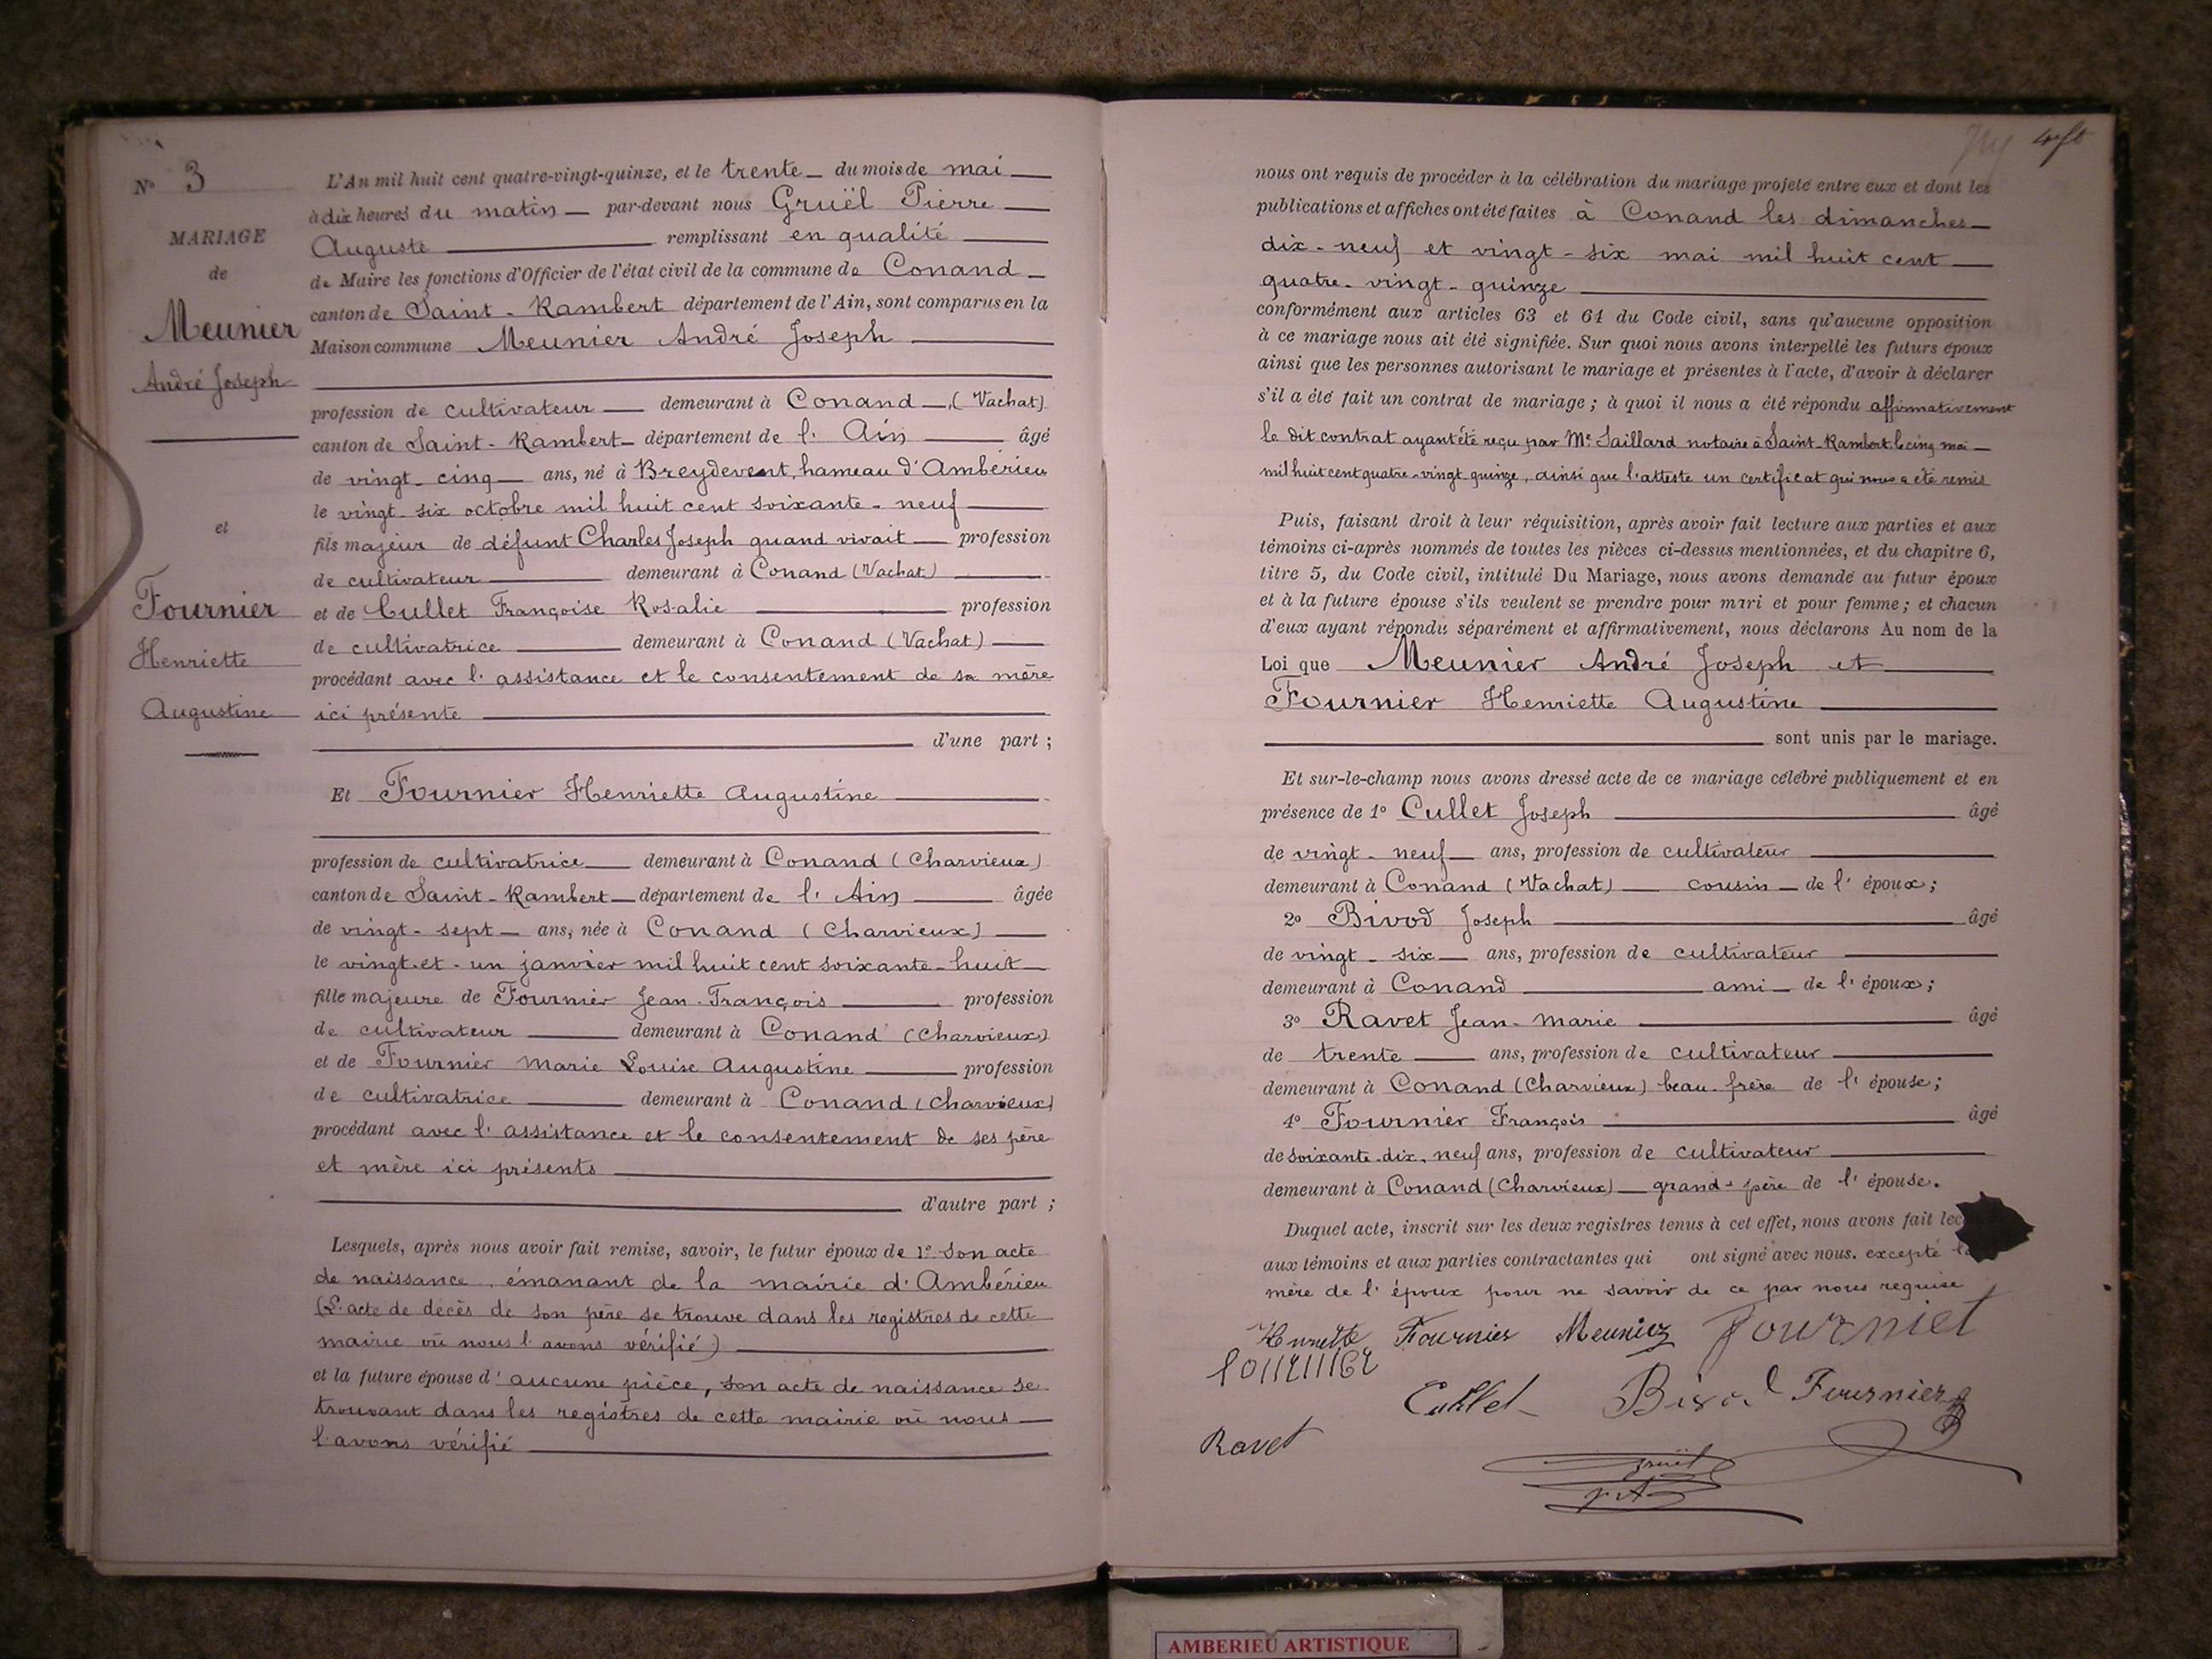 N° 3
MARIAGE
de
Meunier
André Joseph
et
Fournier
Henriette
Augustine
L'An mil huit cent quatre-vingt-quinze, et le trente du mois de mai
à dix heures du matin par-devant nous Gruël Pierre
Auguste remplissant en qualité
de Maire les fonctions d'Officier de l'état civil de la commune de Conand
canton de Saint-Rambert département de l'Ain, sont comparus en la
Maison commune Meunier André Joseph
profession de cultivateur demeurant à Conand (Vachat)
canton de Saint-Rambert département de l'Ain âgé
de vingt-cinq ans, né à Breydevent, hameau d'Ambérieu
le vingt-six octobre mil huit cent soixante-neuf
fils majeur de défunt Charles Joseph quand vivait profession
de cultivateur demeurant à Conand (Vachat)
et de Cullet Françoise Rosalie profession
de cultivatrice demeurant à Conand (Vachat)
procédant avec l'assistance et le consentement de sa mère
ici présente
d'une part ;
Et Fournier Henriette Augustine
profession de cultivatrice demeurant à Conand (Charvieux)
canton de Saint-Rambert département de l'Ain âgée
de vingt-sept ans, née à Conand (Charvieux)
le vingt-et-un janvier mil huit cent soixante-huit
fille majeure de Fournier Jean-François profession
de cultivateur demeurant à Conand (Charvieux)
et de Fournier Marie Louise Augustine profession
de cultivatrice demeurant à Conand (Charvieux)
procédant avec l'assistance et le consentement de ses père
et mère ici présents
d'autre part ;
Lesquels, après nous avoir fait remise, savoir, le futur époux de 1° son acte
de naissance, émanant de la mairie d'Ambérieu
(L'acte de décès de son père se trouve dans les registres de cette
mairie où nous l'avons vérifié)
et la future épouse d'aucune pièce, son acte de naissance se
trouvant dans les registres de cette mairie où nous
l'avons vérifié
nous ont requis de procéder à la célébration du mariage projeté entre eux et dont les
publications et affiches ont été faites à Conand les dimanches
dix-neuf et vingt-six mai mil huit cent
quatre-vingt-quinze
conformément aux articles 63 et 64 du Code civil, sans qu'aucune opposition
à ce mariage nous ait été signifiée. Sur quoi nous avons interpellé les futurs époux
ainsi que les personnes autorisant le mariage et présentes à l'acte, d'avoir à déclarer
s'il a été fait un contrat de mariage ; à quoi il nous a été répondu affirmativement
le dit contrat ayant été reçu par Me Saillard notaire à Saint-Rambert le cinq mai
mil huit cent quatre-vingt-quinze, ainsi que l'atteste un certificat qui nous a été remis
Puis, faisant droit à leur réquisition, après avoir fait lecture aux parties et aux
témoins ci-après nommés de toutes les pièces ci-dessus mentionnées, et du chapitre 6,
titre 5, du Code civil, intitulé Du Mariage, nous avons demandé au futur époux
et à la future épouse s'ils veulent se prendre pour mari et pour femme ; et chacun
d'eux ayant répondu séparément et affirmativement, nous déclarons Au nom de la
Loi que Meunier André Joseph et
Fournier Henriette Augustine
sont unis par le mariage.
Et sur-le-champ nous avons dressé acte de ce mariage célébré publiquement et en
présence de 1° Cullet Joseph âgé
de vingt-neuf ans, profession de cultivateur
demeurant à Conand (Vachat) cousin de l'époux ;
2° Bivod Joseph âgé
de vingt-six ans, profession de cultivateur
demeurant à Conand ami de l'époux ;
3° Ravet Jean-Marie âgé
de trente ans, profession de cultivateur
demeurant à Conand (Charvieux) beau-frère de l'épouse ;
4° Fournier François âgé
de soixante-dix-neuf ans, profession de cultivateur
demeurant à Conand (Charvieux) grand-père de l'épouse.
Duquel acte, inscrit sur les deux registres tenus à cet effet, nous avons fait lec
aux témoins et aux parties contractantes qui ont signé avec nous. excepté
mère de l'époux pour ne savoir de ce par nous requise
Henriette Fournier Meunier Fournier
Cullet Bivod Fournier
Ravet
Gruël
AMBERIEU ARTISTIQUE